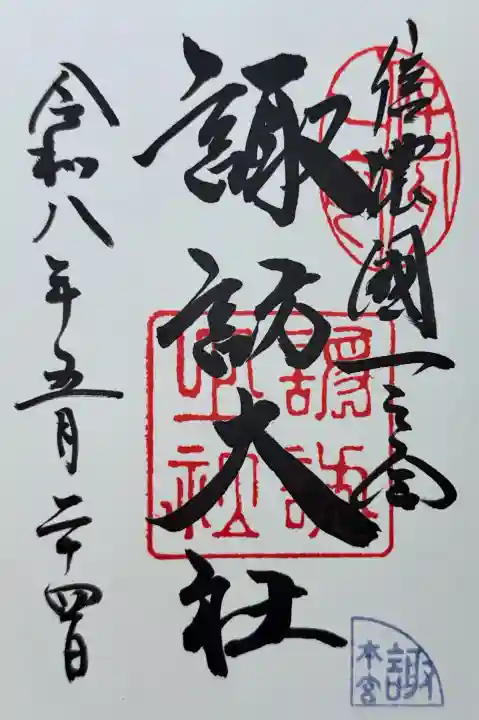 信濃國一之宮
諏訪大社
令和八年五月二十四日
諏
本宮